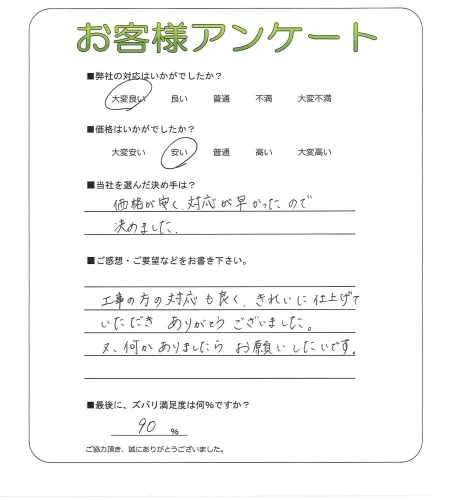 お客様アンケート
■弊社の対応はいかがでしたか？
大変良い 良い 普通 不満 大変不満
■価格はいかがでしたか？
大変安い 安い 普通 高い 大変高い
■当社を選んだ決め手は？
価格が安く、対応が早かったので
決めました。
■ご感想・ご要望などをお書き下さい。
工事の方の対応も良く、きれいに仕上げて
いただき ありがとうございました。
又、何かありましたら お願いしたいです。
■最後に、ズバリ満足度は何％ですか？
90 ％
ご協力頂き、誠にありがとうございました。